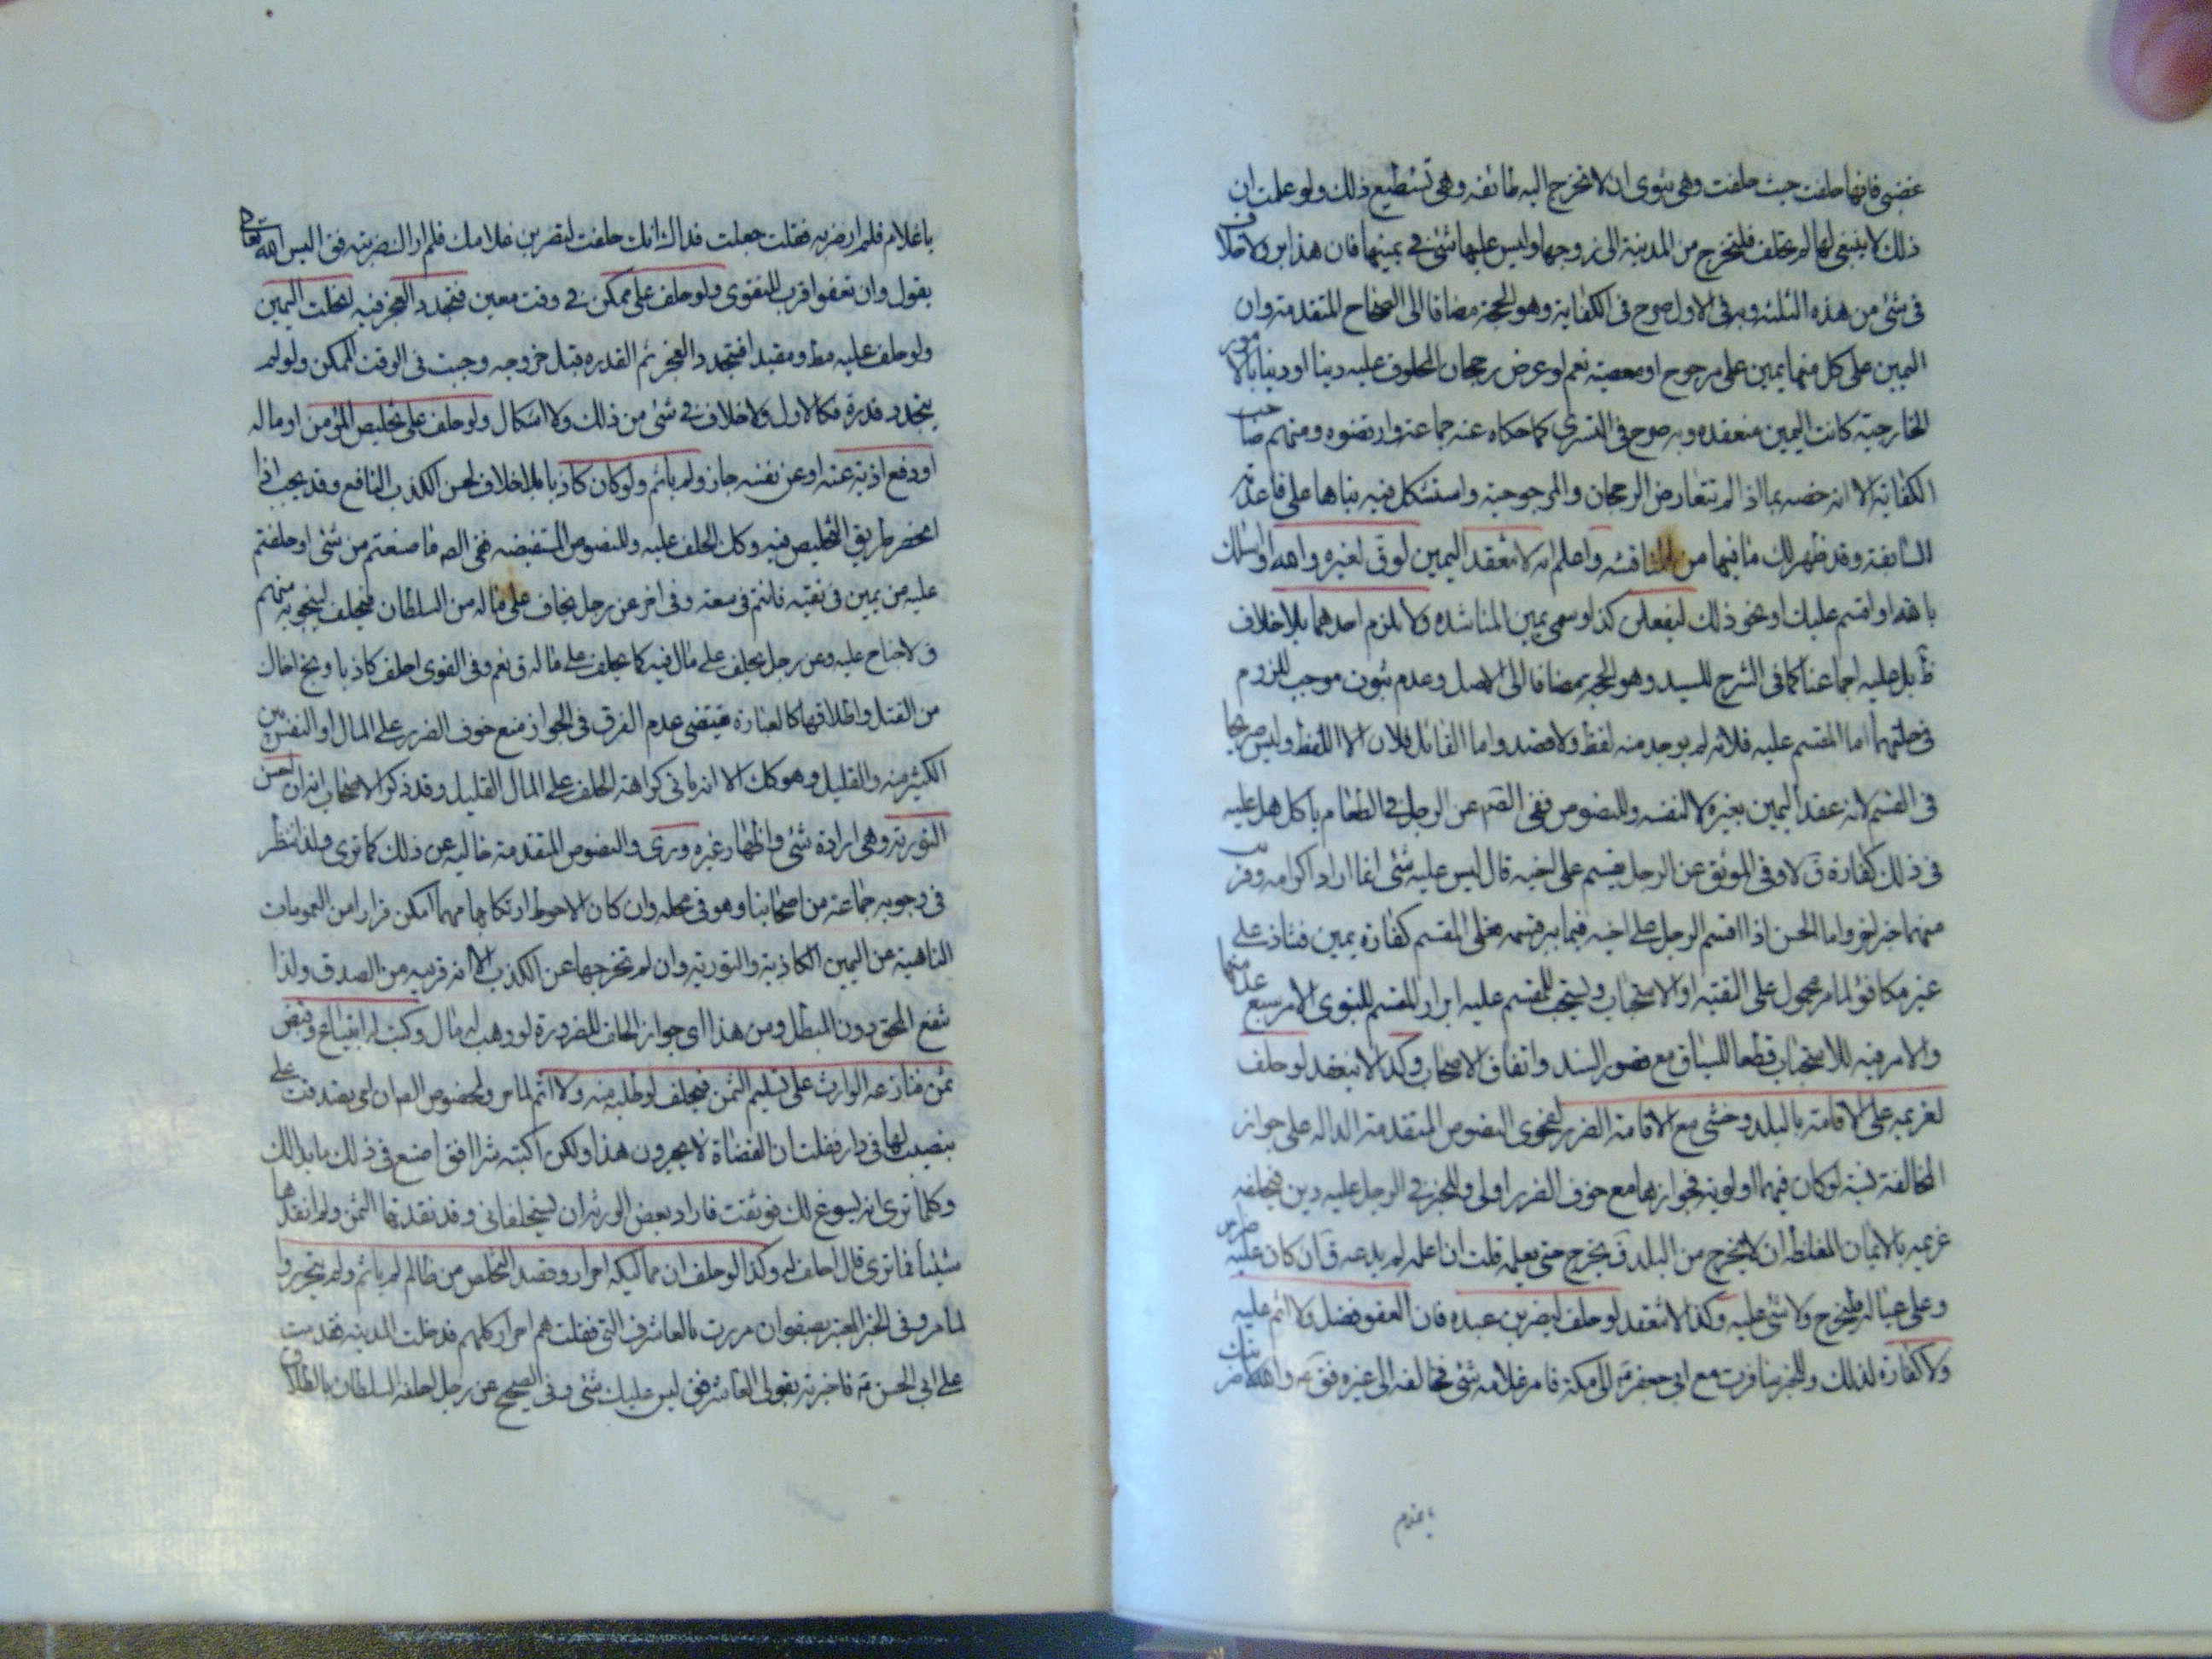 غضبى فانها حلفت حيث حلفت وهى تنوى ان لا تخرج اليه طائعة وهى تستطيع ذلك ولو علمت ان
ذلك لا ينبغى لها لم تحلف فلتخرج من المدينة الى زوجها وليس عليها شئ فى يمينها فان هذا ابر ولا خلاف
فى شئ من هذه الثلثة وبه فى الاول صرح فى الكفاية وهو الحجة مضافا الى الصحاح المتقدمة وان
اليمين على كل منهما يمين على مرجوح او معصية نعم لو عرض رجحان المحلوف عليه دينا او دينا بالامور
الخارجية كانت اليمين منعقده وبه صرح فى السرى كما حكاه عنه جماعة وارتضوه ومنهم صاحب
الكفاية الا انه خصه بما اذا لم تتعارض الرجحان والمرجوحية واستشكل فيه بناها على قاعدته
السابقة وقد ظهر لك ما فيها من المناقشه واعلم انه لا تنعقد اليمين لو ق لغيره والله او اسئلك
بالله او اقسم عليك او نحو ذلك لتفعلن كذا وسمى يمين المناشده ولا يلزم احدهما بلا خلاف
ظ بل عليه اجماعنا كما فى الشرح للسيد وهو الحجة مضافا الى الاصل وعدم ثبوت موجب للزوم
فى حقهما اما المقسم عليه فلانه لم يوجد منه لفظ ولا قصد واما القائل فلان الا اللفظ وليس صريحا
فى القسم لانه عقد اليمين بغيره لا لنفسه وللنصوص ففى الصم عن الرجل فى الطعام ياكل هل عليه
فى ذلك كفارة ق لا وفى الموثق عن الرجل يقسم على اخيه قال ليس عليه شئ انما اراد اكرامه وقريب
منهما خبر اخر واما الحسن اذا اقسم الرجل على اخيه فيما يبر قسمه فعلى المقسم كفارة يمين فشاذ على
غير مكافؤ لما مر محمول على التقية او الاستحباب ويستحب للمقسم عليه ابرار المقسم للنبوى الامر بسبع عد منها
والامر فيه للاستحباب قطعا للسياق مع قصور السند واتفاق الاصحاب وكذا لا تنعقد لو حلف
لغريمه على الاقامة بالبلد وخشى مع الاقامة الضرر لفحوى النصوص المتقدمة الداله على جواز
المخالفة فيه لو كان فيهما اولوية فجوازها مع خوف الضرر اولى وللخبر فى الرجل عليه دين فيحلفه
غريمه بالايمان المغلظه ان لا يخرج من البلد ق يخرج حتى يعلمه قلت ان اعلمه لم يدعه ق ان كان عليه ضرر
وعلى عياله فليخرج ولا شئ عليه وكذا لا تنعقد لو حلف ليضربن عبده فان العفو افضل ولا اثم عليه
ولا كفارة لذلك وللخبر سافرت مع ابى جعفر ع الى مكة فامر غلامه شئ فخالفه الى غيره فق ع والله لاضربنك
يا غلام
يا غلام فلم اره ضربه فقلت جعلت فداك انك حلفت لتضربن غلامك فلم ارك ضربته فق اليس الله تعالى
يقول وان تعفوا اقرب للتقوى ولو حلف على ممكن فى وقت معين فتجدد العجز فيه انحلت اليمين
ولو حلف عليه مط ومقيدا فتجدد العجز ثم القدره قبل خروجه وجبت فى الوقت الممكن ولو لم
يتجدد قدرة فكالاول ولا خلاف فى شئ من ذلك ولا اشكال ولو حلف على تخليص المؤمن او ماله
او دفع اذية عنه او عن نفسه جاز ولم ياثم ولو كان كاذبا بلا خلاف لحسن الكذب النافع وقد يجب اذا
انحصر طريق التخليص فيه وكل الحلف عليه وللنصوص المستفيضه ففى الصم ما صنعتم من شئ او حلفتم
عليه من يمين فى تقيه فانتم فى سعة وفى اخر عن رجل يخاف على ماله من السلطان فيحلف لينجو به منهم
ق لا جناح عليه وعن رجل يحلف على مال فيه كما يحلف على ماله ق نعم وفى القوى احلف كاذبا ونج اخاك
من القتل واطلاقها كالعبارة يقتضى عدم الفرق فى الجواز مع خوف الضرر على المال او النفس بين
الكثير منه والقليل وهو كك الا انه ياتى كراهة الحلف على المال القليل وقد ذكر الاصحاب انه ان احسن
التورية وهى ارادة شئ واظهار غيره ورى والنصوص المتقدمة خاليه عن ذلك كما ترى ولذا تنظر
فى وجوبه جماعة من اصحابنا وهو فى محله وان كان الاحوط ارتكابها مهما امكن فرارا من العمومات
الناهية عن اليمين الكاذبة والتورية وان لم تخرجها عن الكذب الا انه قريبه من الصدق ولذا
تنفع المحق دون المبطل ومن هذا اى جواز الحلف للضرورة لو وهب له مال وكتب له ابتياع وقبض
ثمن فنازعه الوارث على تسليم الثمن فيحلف لو طلبه منه ولا اثم لما مر ولخصوص
بنصيب لها فى دار فقلت ان القضاة لا يجيزون هذا ولكن اكتبه شراء فق اصنع فى ذلك ما بدا لك
وكلما ترى انه يسوغ لك فوثقت فاراد بعض الورثة ان يستحلفانى وقد نقدتها الثمن ولم انقدها
شيئا فما ترى قال احلف له وكذا لو حلف ان مماليكه احرار وقصد التخلص من ظالم لم ياثم ولم يتحرروا
لما مر وفى الخبر المعتبر بصفوان مررت بالعاشر ق التى فقلت هم احرار كلهم فدخلت المدينه فقدمت
على ابى الحسن ع فاخبرته بقولى للعاشر فق ليس عليك شئ وفى الصحيح عن رجل احلفه السلطان بالطلاق